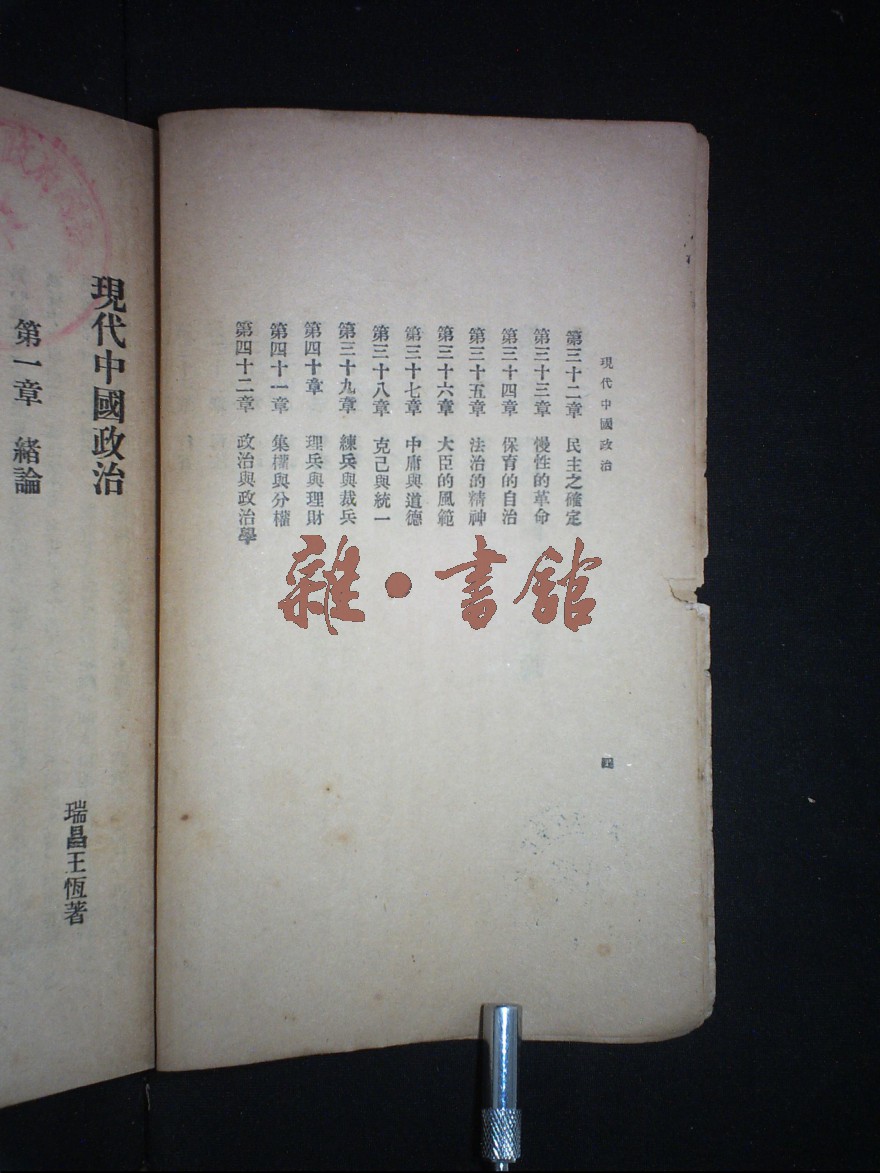 現代中國政治
第三十二章 民主之確定
第三十三章 慢性的革命
第三十四章 保育的自治
第三十五章 法治的精神
第三十六章 大臣的風範
第三十七章 中庸與道德
第三十八章 克己與統一
第三十九章 練兵與裁兵
第四十章 理兵與理財
第四十一章 集權與分權
第四十二章 政治與政治學
四
現代中國政治
瑞昌王恆著
第一章 緒論
雜·書館